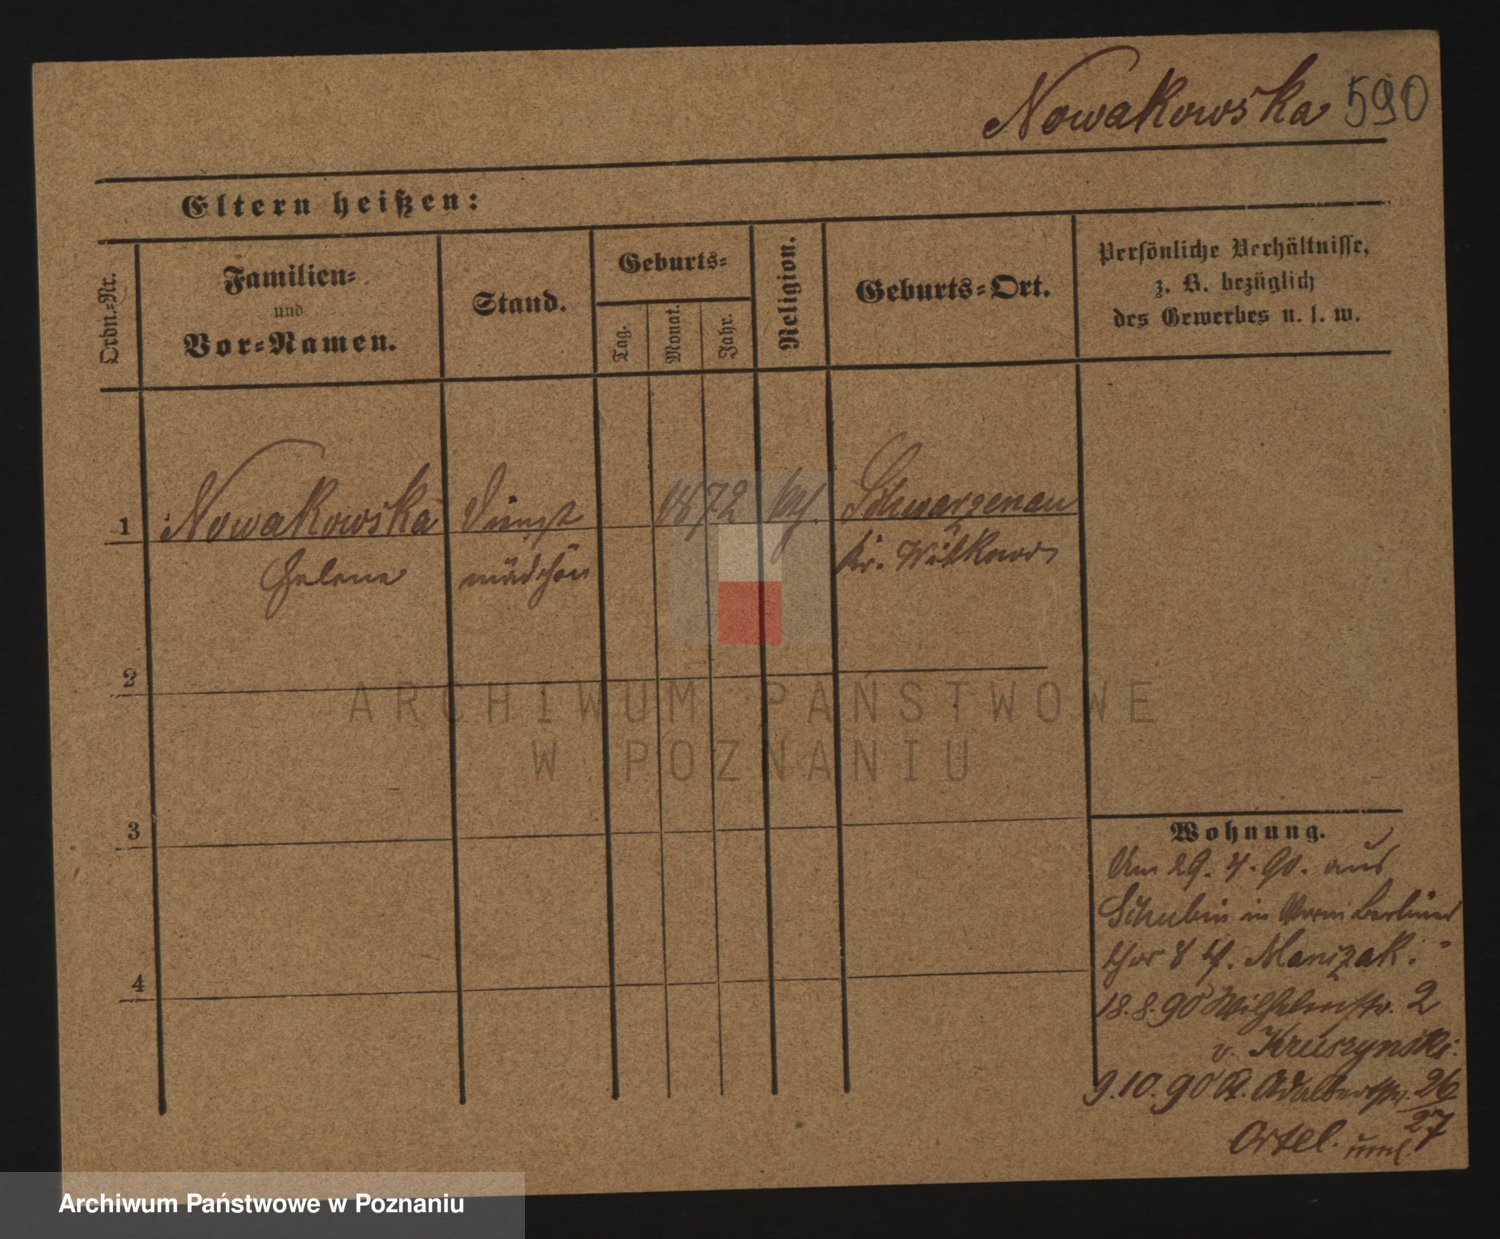 Nowakowska 590
Eltern heißen:
Ordn.-Nr.
Familien-
und
Vor-Namen.
Stand.
Geburts-
Tag.
Monat.
Jahr.
Religion.
Geburts-Ort.
Persönliche Verhältnisse,
z. B. bezüglich
des Gewerbes u. s. w.
1 Nowakowska Dienst 1872 kth. Schwarzenau
Helene mädchen Kr. Witkowo
2
3
4
ARCHIWUM PAŃSTWOWE
W POZNANIU
Wohnung.
Am 29. 4. 90. aus
Schubin in Berliner
thor 8 Manczak.
18.8.90 Wilhelmstr. 2
v. Kruszynski.
9.10.90 St. Adalbertstr. 26
27
Ortel.
Archiwum Państwowe w Poznaniu